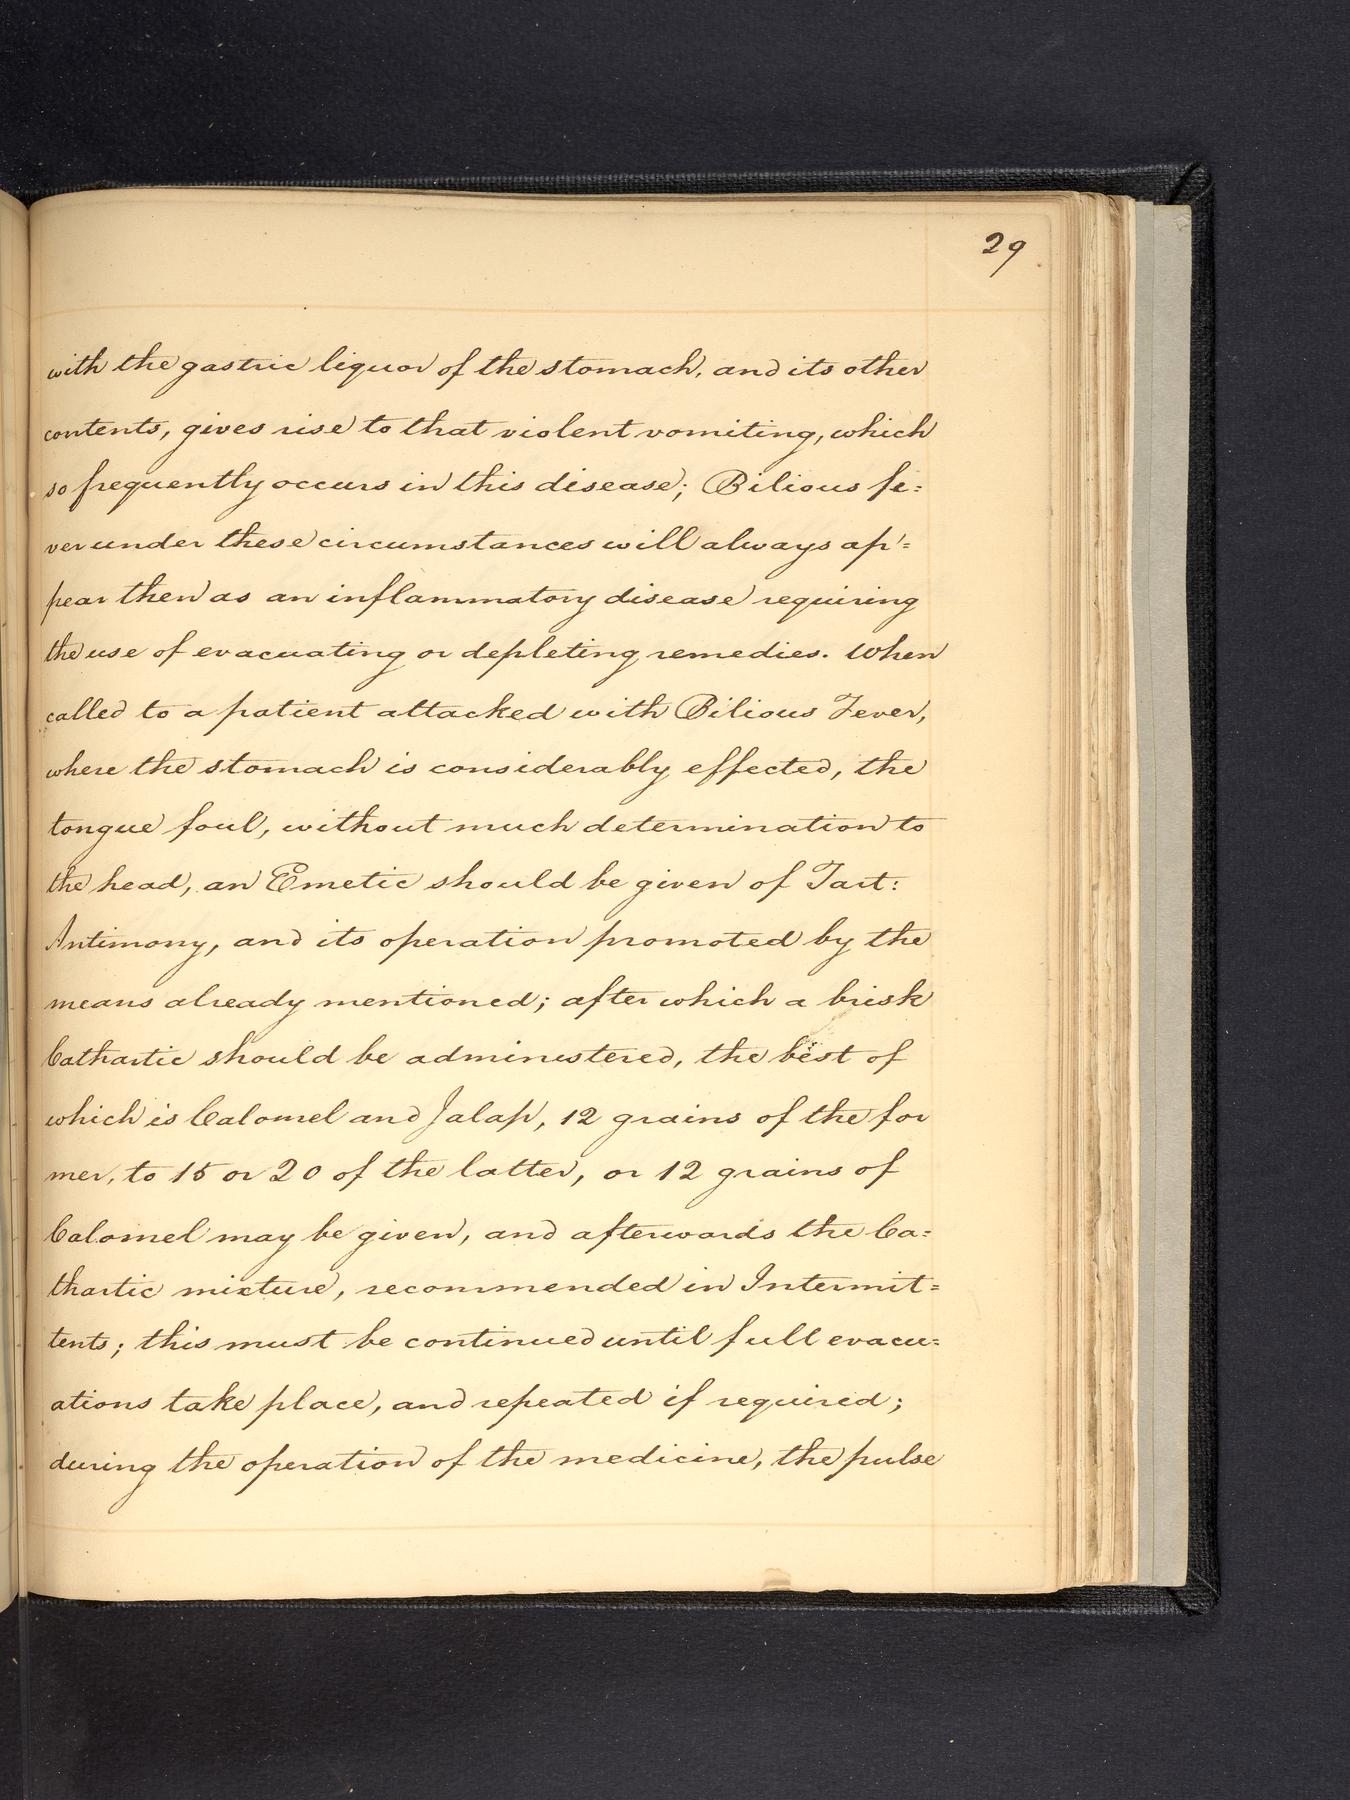 29
with the gastric liquor of the stomach, and its other
contents, gives rise to that violent vomiting, which
so frequently occurs in this disease; Bilious fe=
ver under these circumstances will always ap'=
pear then as an inflammatory disease requiring
the use of evacuating or depleting remedies. When
called to a patient attacked with Bilious Fever,
where the stomach is considerably effected, the
tongue foul, without much determination to
the head, an Emetic should be given of Tart:
Antimony, and its operation promoted by the
means already mentioned; after which a brisk
Cathartic should be administered, the best of
which is Calomel and Jalap, 12 grains of the for
mer, to 15 or 20 of the latter, or 12 grains of
Calomel may be given, and afterwards the Ca=
thartic mixture, recommended in Intermit=
tents; this must be continued until full evacu=
ations take place, and repeated if required;
during the operation of the medicine, the pulse